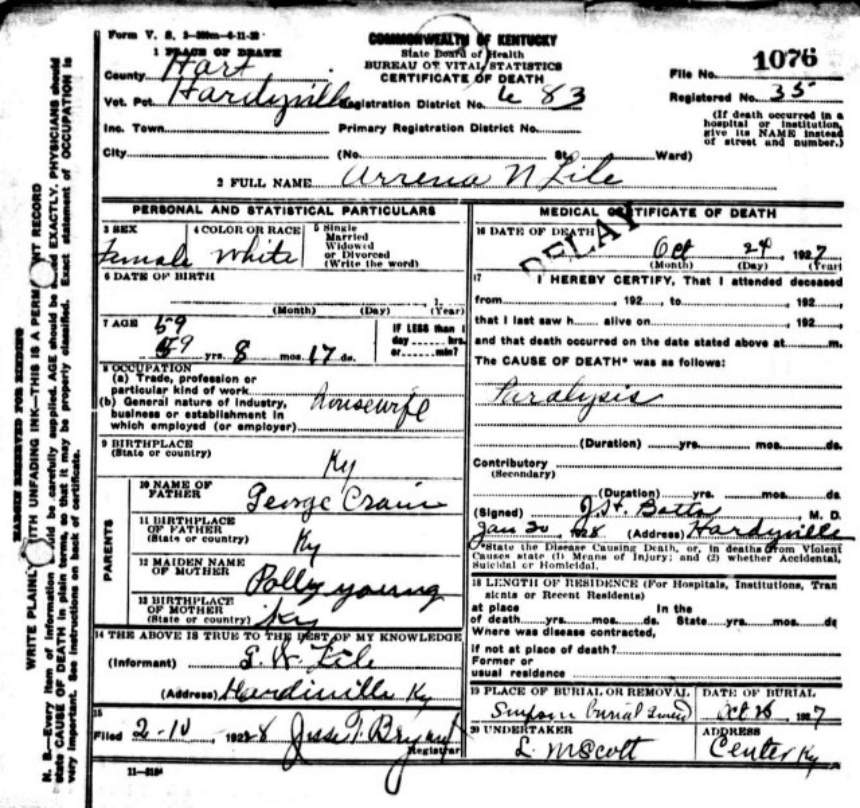 Form V. S.
COMMONWEALTH OF KENTUCKY
State Board of Health
BUREAU OF VITAL STATISTICS
CERTIFICATE OF DEATH
1 PLACE OF DEATH
County Hart
File No. 1076
Vot. Pct. Hardyville Registration District No. 683
Registered No. 35
Inc. Town Primary Registration District No.
(If death occurred in a hospital or institution, give its NAME instead of street and number.)
City (No. St. Ward)
2 FULL NAME Arrena N Lile
PERSONAL AND STATISTICAL PARTICULARS
3 SEX Female
4 COLOR OR RACE White
5 Single
Married
Widowed
or Divorced
(Write the word)
6 DATE OF BIRTH
(Month) (Day) (Year)
7 AGE 59
59 yrs. 8 mos. 17 ds.
IF LESS than 1
day hrs.
or min?
8 OCCUPATION
(a) Trade, profession or
particular kind of work
(b) General nature of industry,
business or establishment in
which employed (or employer)
housewife
9 BIRTHPLACE
(State or country) Ky
PARENTS
10 NAME OF
FATHER George Crain
11 BIRTHPLACE
OF FATHER
(State or country) Ky
12 MAIDEN NAME
OF MOTHER Polly young
13 BIRTHPLACE
OF MOTHER
(State or country) Ky
14 THE ABOVE IS TRUE TO THE BEST OF MY KNOWLEDGE
(Informant) Lile
(Address) Hardiville Ky
15
Filed 2-10 1928 Jesse T. Bryant
Registrar
11-3184
MEDICAL CERTIFICATE OF DEATH
DELAY
16 DATE OF DEATH
Oct 24, 1927
(Month) (Day) (Year)
17 I HEREBY CERTIFY, That I attended deceased
from 192 , to 192
that I last saw h alive on 192
and that death occurred on the date stated above at m.
The CAUSE OF DEATH* was as follows:
Paralysis
(Duration) yrs. mos. ds.
Contributory
(Secondary)
(Duration) yrs. mos. ds.
(Signed) , M. D.
Jan 20, 1928 (Address) Hardyville
*State the Disease Causing Death, or, in deaths from Violent
Causes state (1) Means of Injury; and (2) whether Accidental,
Suicidal or Homicidal.
18 LENGTH OF RESIDENCE (For Hospitals, Institutions, Tran
sients or Recent Residents)
at place In the
of death yrs. mos. ds. State yrs. mos. ds.
Where was disease contracted,
if not at place of death?
Former or
usual residence
19 PLACE OF BURIAL OR REMOVAL DATE OF BURIAL
Simpson burial Oct 1927
20 UNDERTAKER ADDRESS
L. McScott Center Ky
MARGIN RESERVED FOR BINDING
WRITE PLAINLY WITH UNFADING INK—THIS IS A PERMANENT RECORD
N. B.—Every item of information should be carefully supplied. AGE should be stated EXACTLY. PHYSICIANS should
state CAUSE OF DEATH in plain terms, so that it may be properly classified. Exact statement of OCCUPATION is
very important. See instructions on back of certificate.